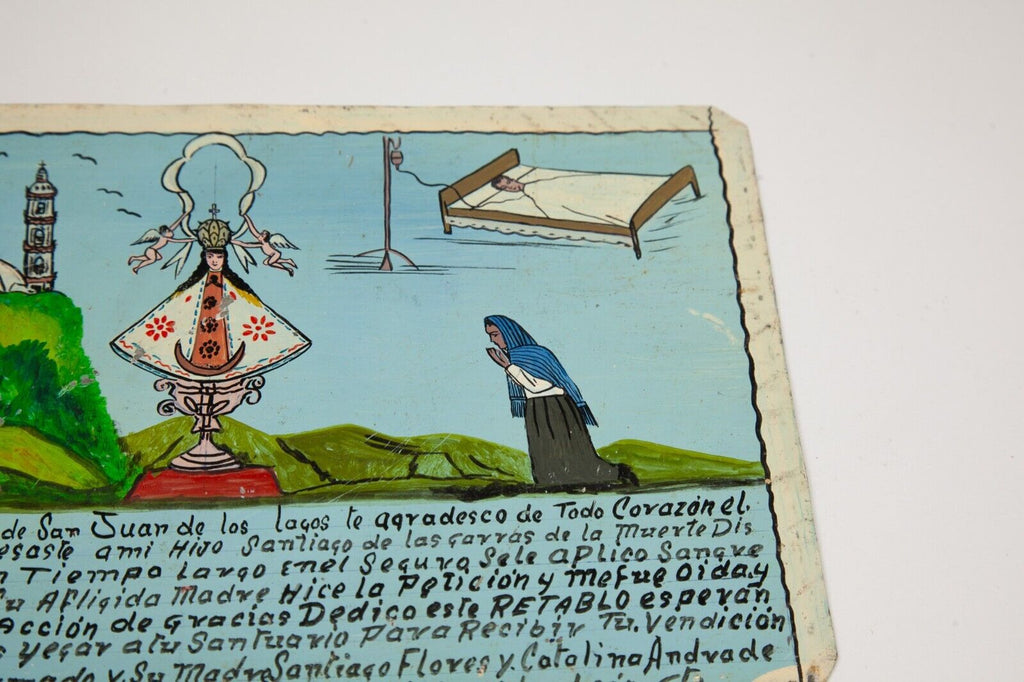 de San Juan de los lagos te agradesco de Todo Corazón el.
esaste ami Hijo Santiago de las garras de la Muerte Dis
n Tiempo largo Enel Seguro Sele aplico Sangre
Su Afligida Madre Hice la Petición y Mefue Oida y
Acción de gracias Dedico este RETABLO esperan
s yegar atu Santuario para Recibir Tu. Vendición
mado y. Su Madre Santiago Flores y. Catalina Andrade